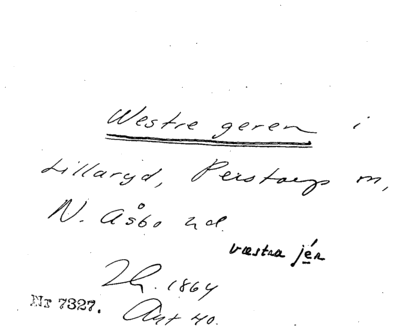 Westre geren i
Lillaryd, Perstorps m,
N. Åsbo hd.
væstra jén
1864
Nr 7327. Art 40.